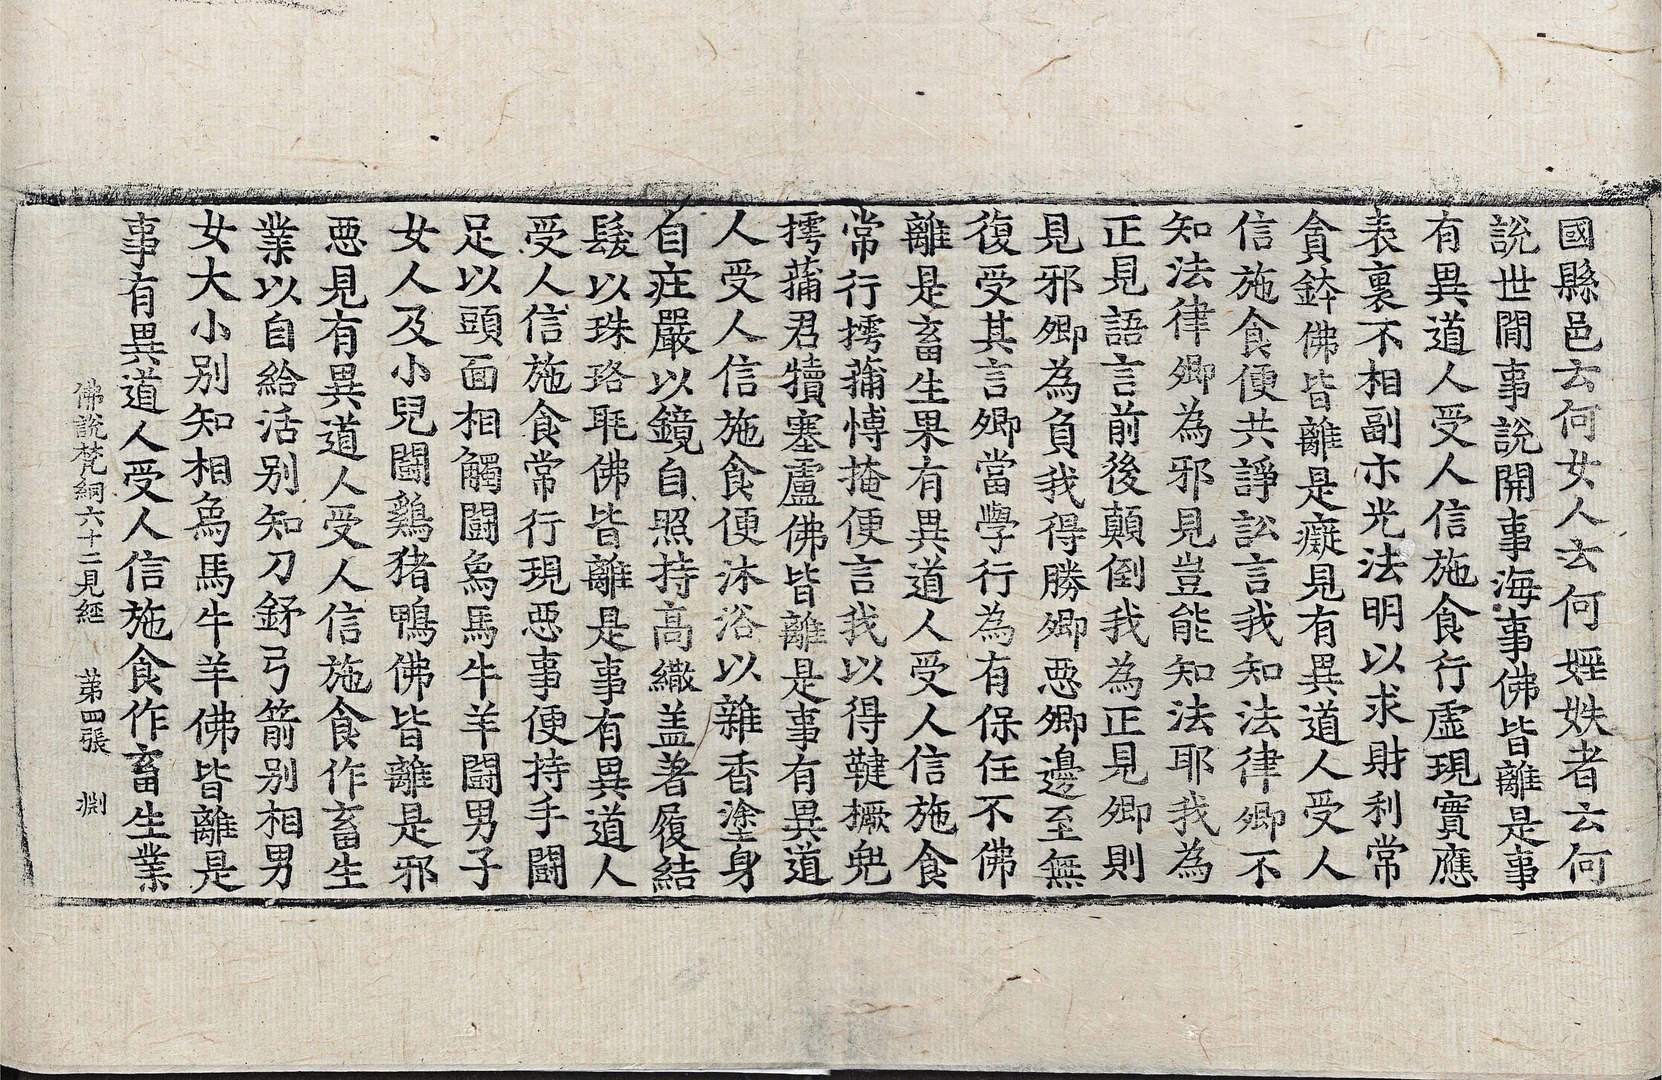 國縣邑云何女人云何婬妷者云何
說世間事說開事海事佛皆離是事
有異道人受人信施食行虛現實應
表裏不相副亦光法明以求財利常
貪鉢佛皆離是癡見有異道人受人
信施食便共諍訟言我知法律卿不
知法律卿為邪見豈能知法耶我為
正見語言前後顛倒我為正見卿則
見邪卿為負我得勝卿惡卿邊至無
復受其言卿當學行為有保任不佛
離是畜生果有異道人受人信施食
常行摴蒱博掩便言我以得鞬撅兜
摴蒲君犢塞盧佛皆離是事有異道
人受人信施食便沐浴以雜香塗身
自庄嚴以鏡自照持高繖盖著履結
髲以珠珞毦佛皆離是事有異道人
受人信施食常行現惡事便持手鬪
足以頭面相觸鬪象馬牛羊鬪男子
女人及小兒鬪鷄猪鴨佛皆離是邪
惡見有異道人受人信施食作畜生
業以自給活別知刀釪弓箭別相男
女大小別知相象馬牛羊佛皆離是
事有異道人受人信施食作畜生業
佛說梵網六十二見經 第四張 淵